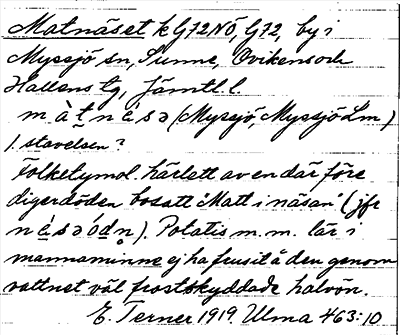 Matnäset k G72NÖ, G72, by i
Myssjö sn, Sunne, Ovikens och
Hallens tg, Jämtl. l.
m à t n é s ə (Myssjö, Myssjö Lm)
1. stavelsen?
Folketymol. härlett av en där före
digerdöden bosatt "Matt i näsan" (jfr
n é s ə ó d n). Potatis m. m. lär i
mannaminne ej ha frusit å den genom
vattnet väl frostskyddade halvön.
E. Terner 1919. Ulma 463:10